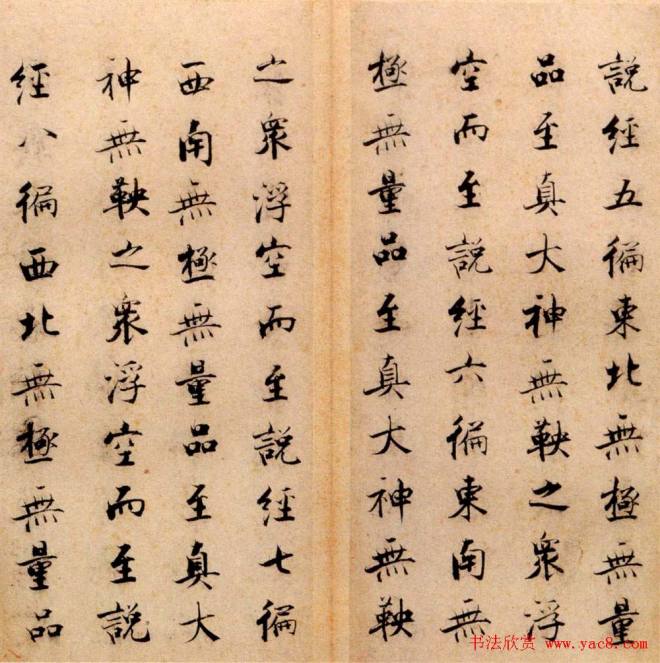 說經五徧東北無極無量
品至真大神無鞅之衆浮
空而至說經六徧東南無
極無量品至真大神無鞅
之衆浮空而至說經七徧
西南無極無量品至真大
神無鞅之衆浮空而至說
經八徧西北無極無量品
书法欣赏 www.yac8.com